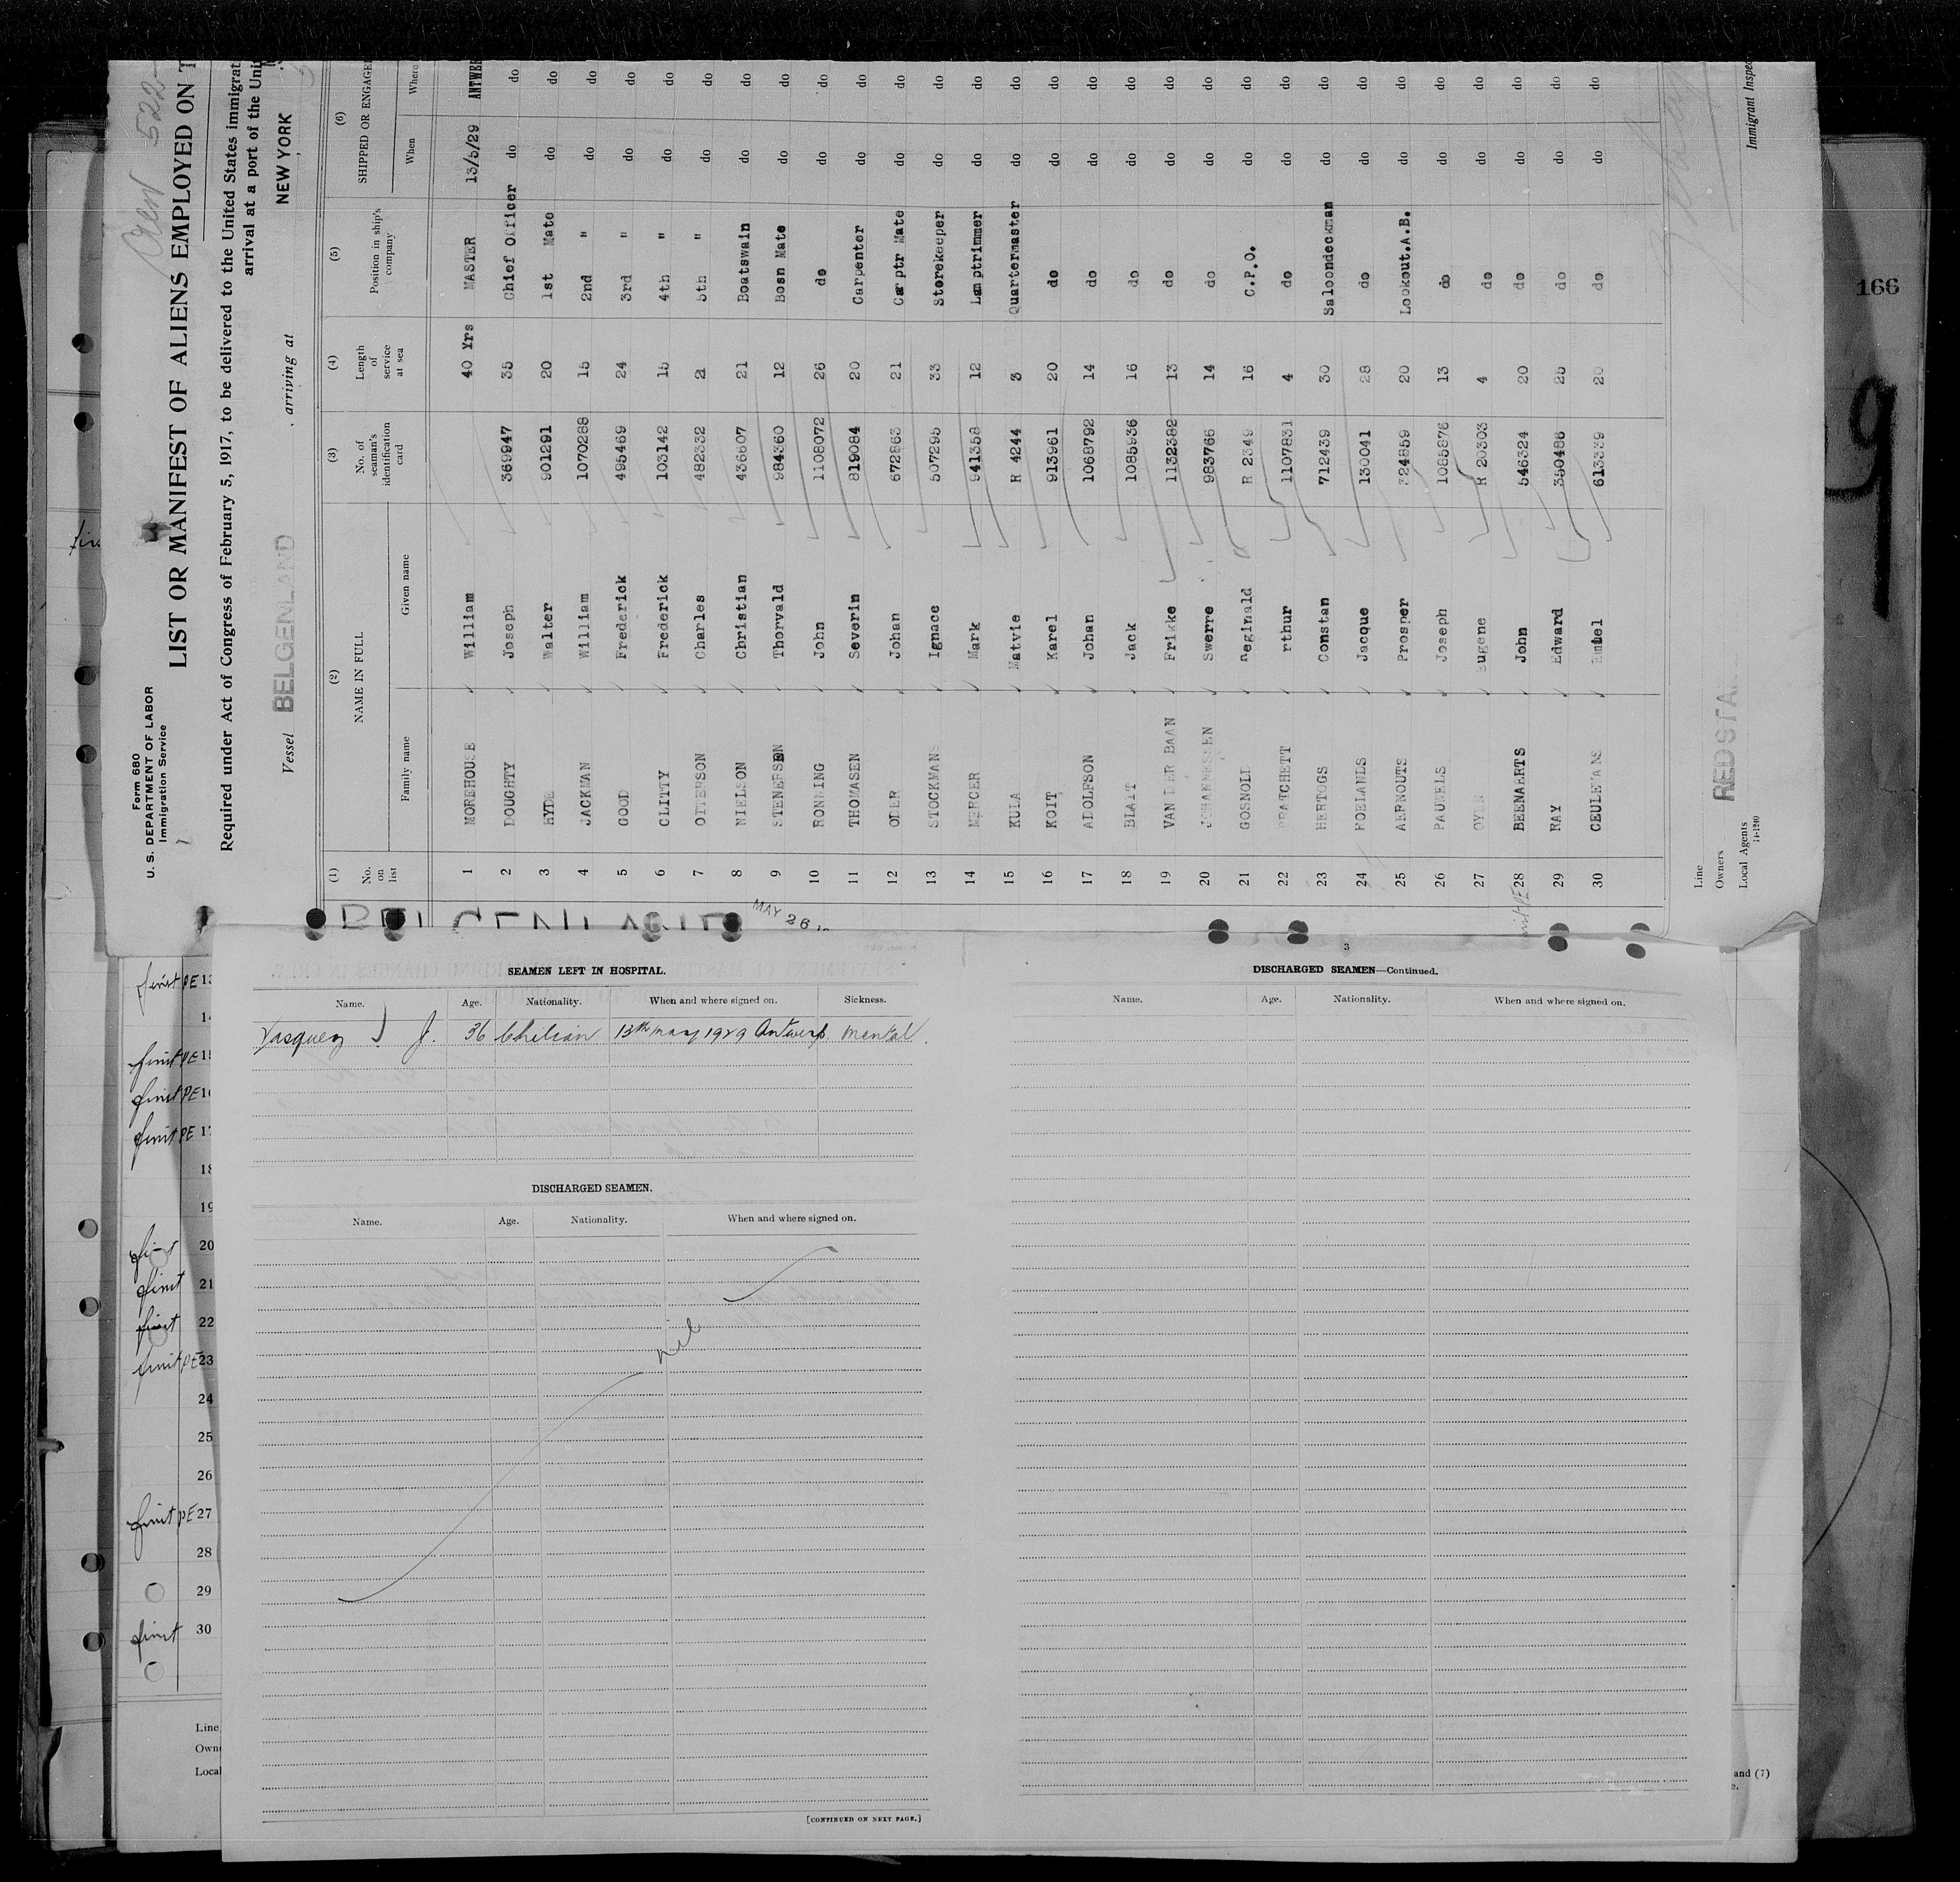 Form 680
U. S. DEPARTMENT OF LABOR
Immigration Service
LIST OR MANIFEST OF ALIENS EMPLOYED ON T
Required under Act of Congress of February 5, 1917, to be delivered to the United States immigrat
arrival at a port of the Unit
Vessel BELGENLAND , arriving at NEW YORK
(1) (2) (3) (4) (5) (6)
No. on list NAME IN FULL No. of seaman's identification card Length of service at sea Position in ship's company SHIPPED OR ENGAGE
Family name Given name When Where
1 MOREHOUSE William 40 Yrs MASTER 13/5/29 ANTWE
2 DOUGHTY Joseph 369947 35 Chief Officer do do
3 HYDE Walter 901291 20 1st Mate do do
4 JACKMAN William 1070288 15 2nd " do do
5 GOOD Frederick 495469 24 3rd " do do
6 CLITTY Frederick 103142 15 4th " do do
7 OTTERSON Charles 482332 21 5th " do do
8 NIELSON Christian 436607 21 Boatswain do do
9 STENERSEN Thorvald 984360 12 Bosn Mate do do
10 RONNING John 1108072 26 do do do
11 THOMASEN Severin 819084 20 Carpenter do do
12 ODER Johan 672863 21 Carptr Mate do do
13 STOCKMANS Ignace 507295 33 Storekeeper do do
14 MERCER Mark 941358 12 Lamptrimmer do do
15 KULA Matvie R 4244 3 Quartermaster do do
16 KOIT Karel 913961 20 do do do
17 ADOLFSON Johan 1068792 14 do do do
18 BLAIT Jack 1085936 16 do do do
19 VAN DER BAAN Frikke 1132382 13 do do do
20 JOHANNESSEN Swerre 983766 14 do do do
21 GOSNOLD Reginald R 2349 16 C.P.O. do do
22 PRATCHETT rthur 1107831 4 do do do
23 HERTOGS Constan 712439 30 Salondeckman do do
24 ROELANDS Jacque 130041 28 do do do
25 AERNOUTS Prosper 324859 20 Lookout.A.B. do do
26 PAUWELS Joseph 1085876 13 do do do
27 Eugene R 20303 4 do do do
28 BEENAERTS John 546324 20 do do do
29 RAY Edward 350486 25 do do do
30 CEULEMANS Emiel 613339 20 do do do
Line RED STA
Owners
Local Agents
14-1240
Immigrant Inspec
166
MAY 26
3
SEAMEN LEFT IN HOSPITAL.
Name. Age. Nationality. When and where signed on. Sickness.
Vasquez J. 36 Chilian 13th may 1929 Antwerp. Mental.
DISCHARGED SEAMEN.
Name. Age. Nationality. When and where signed on.
nil
[CONTINUED ON NEXT PAGE.]
DISCHARGED SEAMEN—Continued.
Name. Age. Nationality. When and where signed on.
18
19
20
21
22
23
24
25
26
27
28
29
30
Line
Own
Local
and (7)